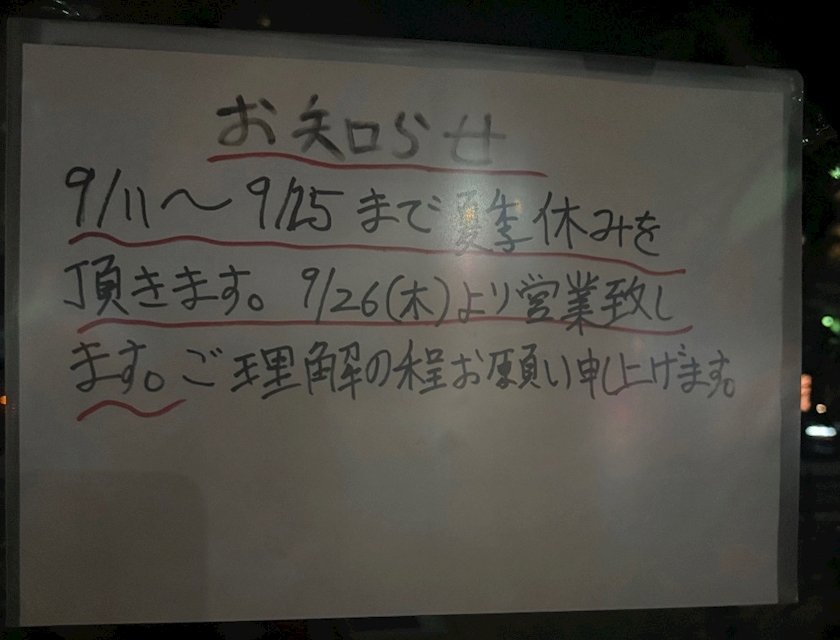 お知らせ
9/11～9/25まで夏季休みを
頂きます。9/26(木)より営業致し
ます。ご理解の程お願い申し上げます。